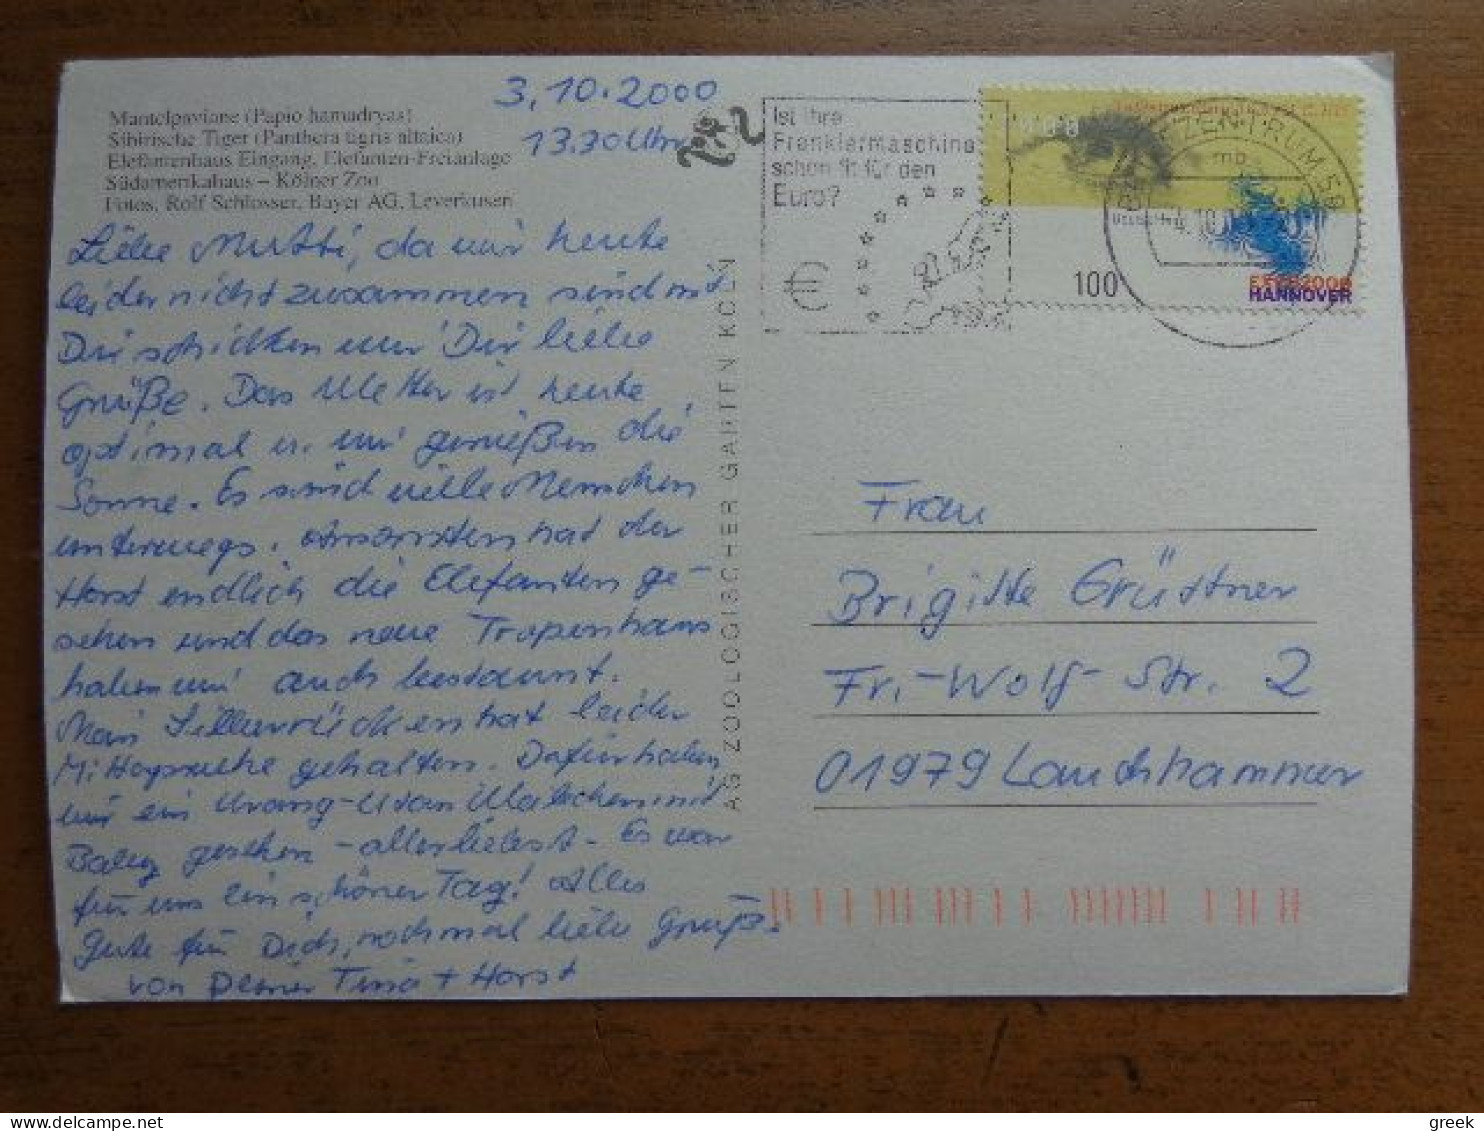 Mantelpaviane (Papio hamadryas)
Sibirische Tiger (Panthera tigris altaica)
Elefantenhaus Eingang, Elefanten-Freianlage
Südamerikahaus – Kölner Zoo
Fotos, Rolf Schlosser, Bayer AG, Leverkusen
3.10.2000
13.30 Uhr
Liebe Mutti, da wir heute
leider nicht zusammen sind mit
Dir schicken wir Dir liebe
Grüße. Das Wetter ist heute
optimal u. wir genießen die
Sonne. Es sind viele Menschen
unterwegs. Ansonsten hat der
Horst endlich die Elefanten ge-
sehen und das neue Tropenhaus
haben wir auch bestaunt.
Mein Silberrücken hat leider
Mittagsruhe gehalten. Dafür haben
wir ein Urang-Utan Mädchen mit
Baby gesehen – allerliebst. Es war
für uns ein schöner Tag! Alles
Gute für Dich, nochmal liebe Grüße
von Deiner Tina + Horst
AG ZOOLOGISCHER GARTEN KÖLN
Ist Ihre
Frankiermaschine
schon fit für den
Euro?
€
BRIEFZENTRUM 50
mb
4.10.
100
EXPO2000
HANNOVER
Frau
Brigitte Grüttner
Fr.-Wolf-Str. 2
01979 Lauchhammer
greek